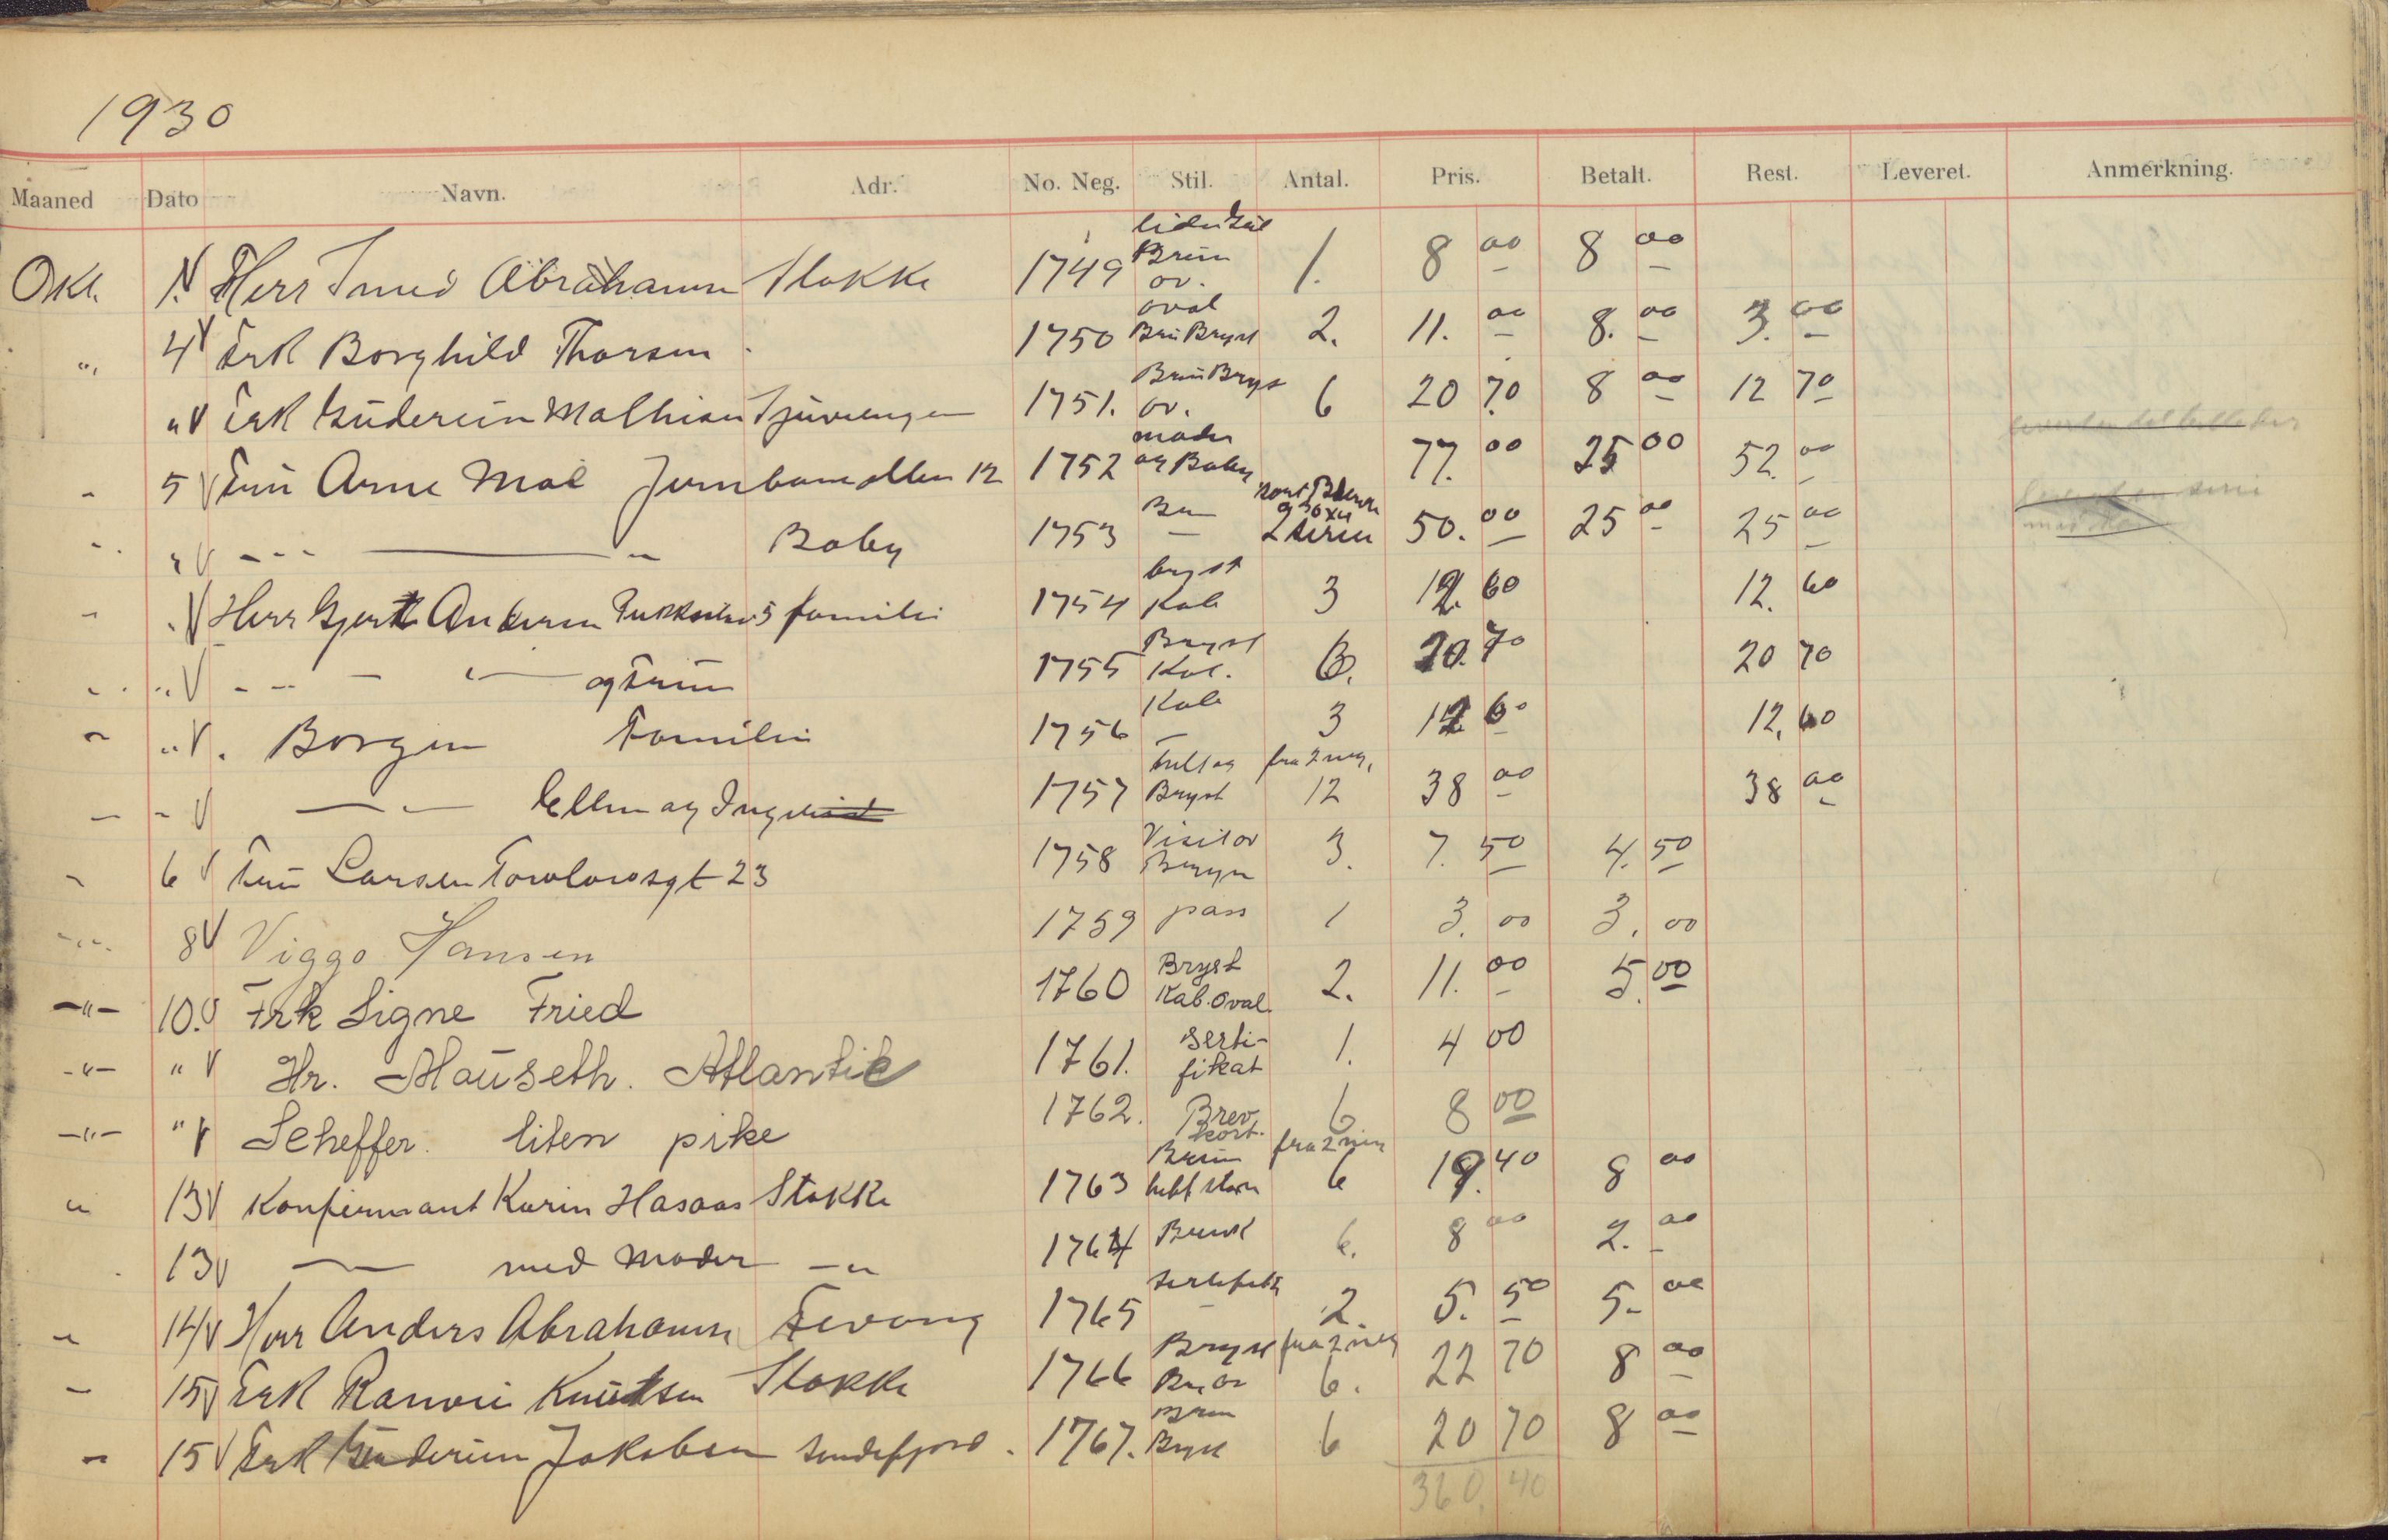 1930
Maaned Dato Navn. Adr. No. Neg. Stil. Antal. Pris. Betalt. Rest. Leveret. Anmerkning.
Okt. 1. Herr Abrahamsen Stokke 1749 Brun ov. 1. 8 00 8 00
" 4 Frk Borghild Thorsen 1750 oval Brun Bryst 2. 11. 00 8. 00 3. 00
" Frk Guderun Mathisen 1751. Brun Bryst ov. 6 20 70 8 00 12 70
" 5 Fru Arne Moe Jernbanealleen 12 1752 moder og Baby 77. 00 25 00 52. 00
" " - - - " Baby 1753 — 50. 00 25 00 25 00
" " Herr Gjert Andersen familie 1754 bryst Kab 3 12. 60 12. 60
" " - - - " og Fruen 1755 Bryst Kab. 6. 20. 70 20 70
" " Borgen Familie 1756 Kab — 3 12 60 12. 60
" " — " — Ellen og 1757 helt og Bryst fra 2 neg. 12 38 00 38 00
" 6 Fru Larsen 23 1758 Visit ov 3. 7. 50 4. 50
" 8 Viggo Hansen 1759 pass 1 3. 00 3. 00
—"— 10. Frk Signe Fried 1760 Bryst Kab. Oval. 2. 11. 00 5. 00
-"- " Hr. Mauseth. Atlantic 1761. Serti- fikat 1. 4 00
—"— " Scheffer. liten pike 1762. Brev kort. 6 8 00
" 13 Konfirmant Karin Hasaas Stokke 1763 Brun fra 2 6 19. 40 8 00
13 — " — med Moder — " 1764 6. 8 00 2. 00
" 14 Herr Anders Abrahamsen Fevang 1765 — 2. 5. 50 5. 00
" 15 Frk Knutsen Stokke 1766 Bryst fra 2 neg 6. 22 70 8 00
" 15 Frk Guderun Jakobsen Sandefjord. 1767. Brun Bryst 6 20 70 8 00
360. 40